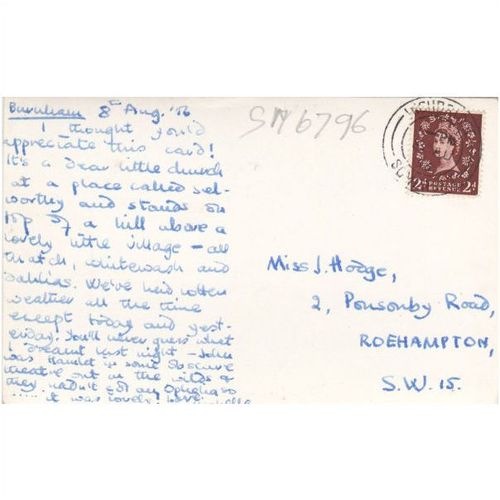 Burnham 8th Aug. '56
I thought you'd
appreciate this card!
It's a dear little church
at a place called Sel-
worthy and stands on
top of a hill above a
lovely little village - all
thatch, whitewash and
dahlias. We've had rotten
weather all the time
except today and yest-
erday! You'll never guess what
I dreamt last night - John
was Hamlet in some obscure
theatre out in the wilds &
they hadn't got any Ophelia so
..... it was lovely! Love
SM6796
2d POSTAGE REVENUE 2d
Miss J. Hodge,
2, Ponsonby Road,
ROEHAMPTON,
S.W. 15.